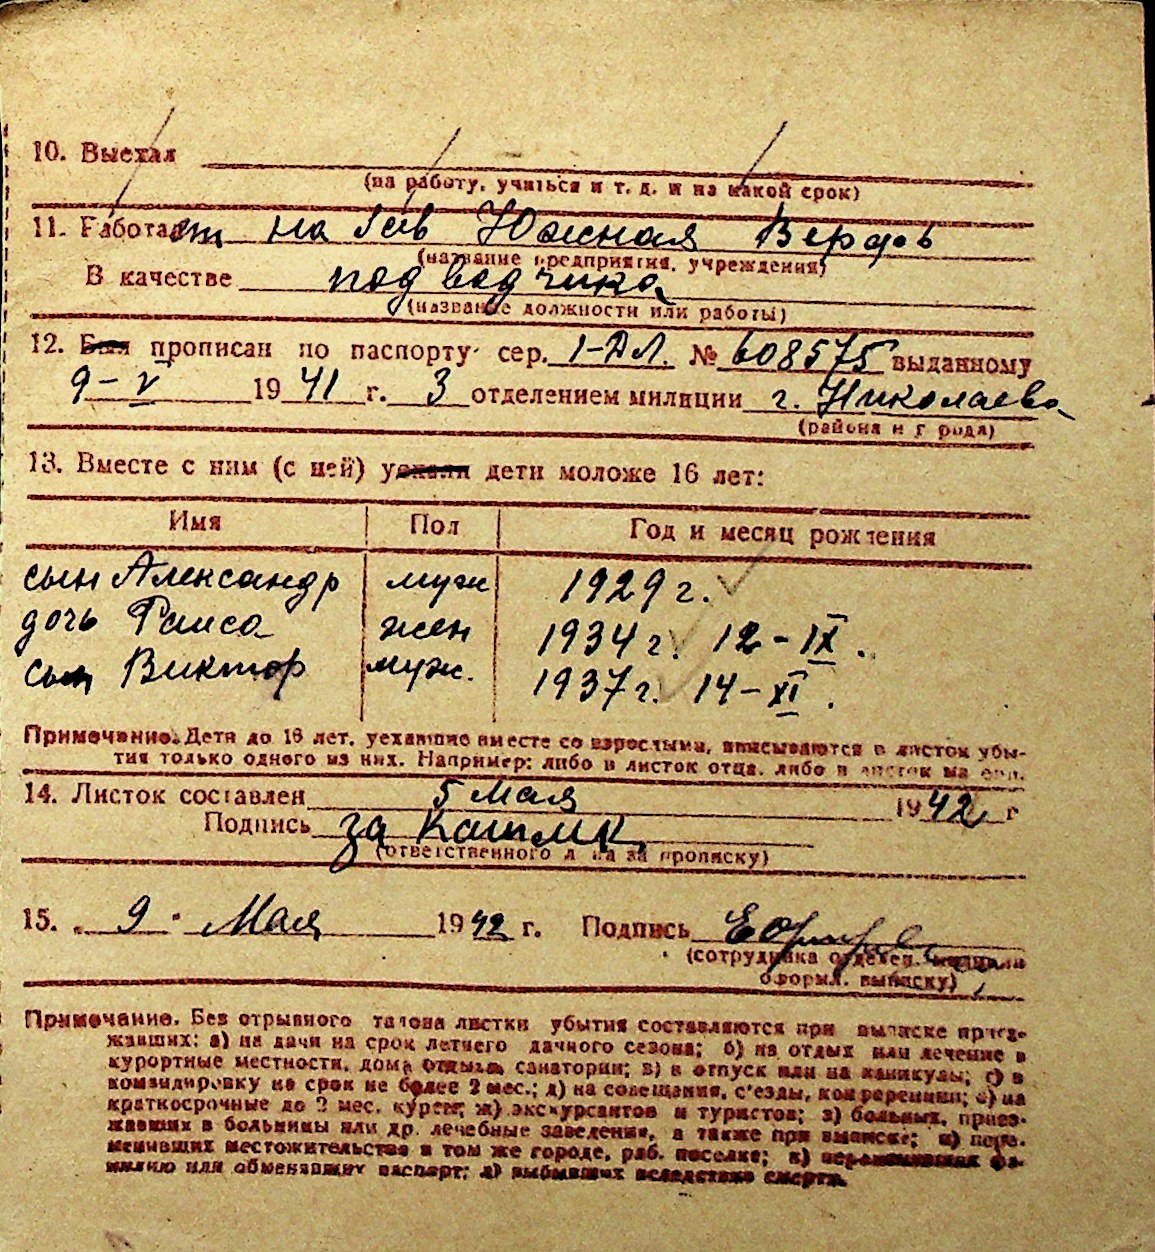 10. Выехал
(на работу, учиться и т. д. и на какой срок)
11. Работает на Южная Верфь
(название предприятия, учреждения)
В качестве подводчика
(название должности или работы)
12. Был прописан по паспорту сер. 1-ДЛ. № 608575 выданному
9-V 1941 г. 3 отделением милиции г. Николаева
(района и города)
13. Вместе с ним (с ней) уехали дети моложе 16 лет:
Имя Пол Год и месяц рождения
сын Александр муж 1929 г.
дочь Раиса жен 1934 г. 12-IX.
сын Виктор муж. 1937 г. 14-XI.
Примечание. Дети до 16 лет, уехавшие вместе со взрослыми, вписываются в листок убы-
тия только одного из них. Например: либо в листок отца, либо в листок матери.
14. Листок составлен 5 мая 1942 г
Подпись за
(ответственного лица за прописку)
15. 9 Мая 1942 г. Подпись
(сотрудника отделен. милиции
оформл. выписку)
Примечание. Без отрывного талона листки убытия составляются при выписке приез-
жавших: а) на дачи на срок летнего дачного сезона; б) на отдых или лечение в
курортные местности, дома отдыха, санатории; в) в отпуск или на каникулы; г) в
командировку на срок не более 2 мес.; д) на совещания, с'езды, конференции; е) на
краткосрочные до 2 мес. курсы; ж) экскурсантов и туристов; з) больных, приез-
жавших в больницы или др. лечебные заведения, а также при выписке; и) пере-
менивших местожительство в том же городе, раб. поселке; к) переменивших фа-
милию или обменявших паспорт; л) выбывших вследствие смерти.